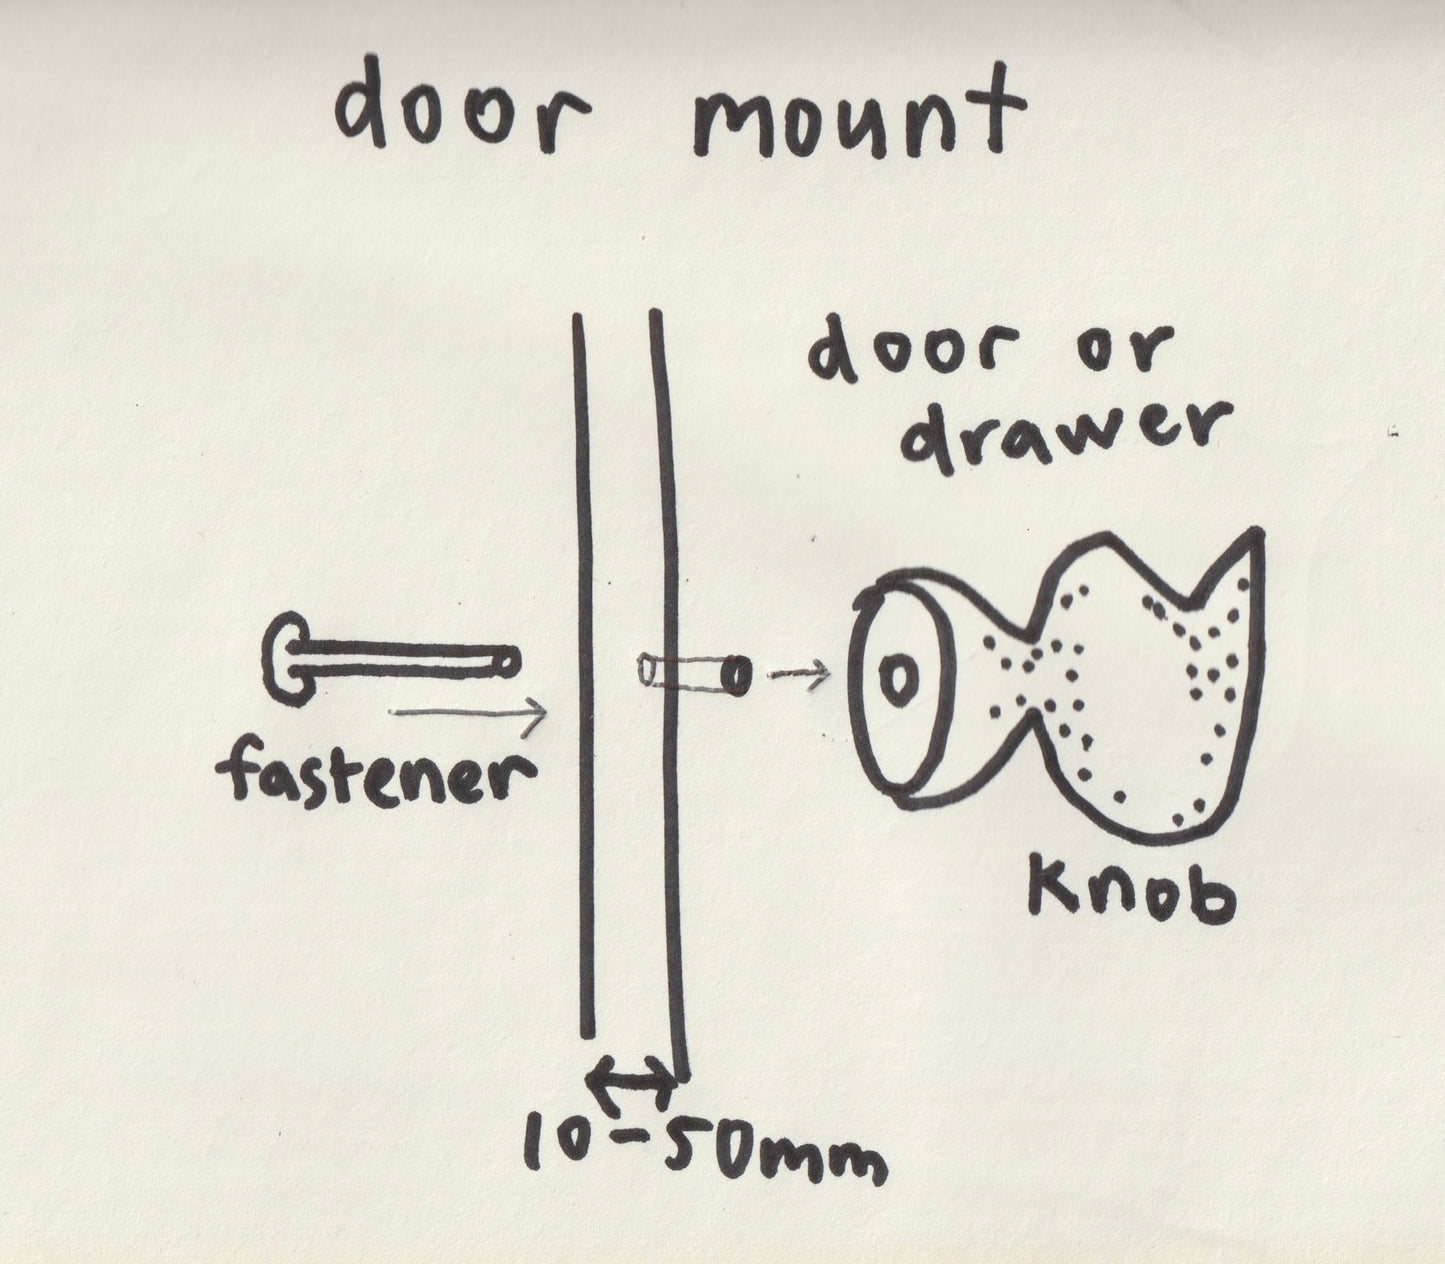 door mount
door or
drawer
fastener
knob
10-50mm